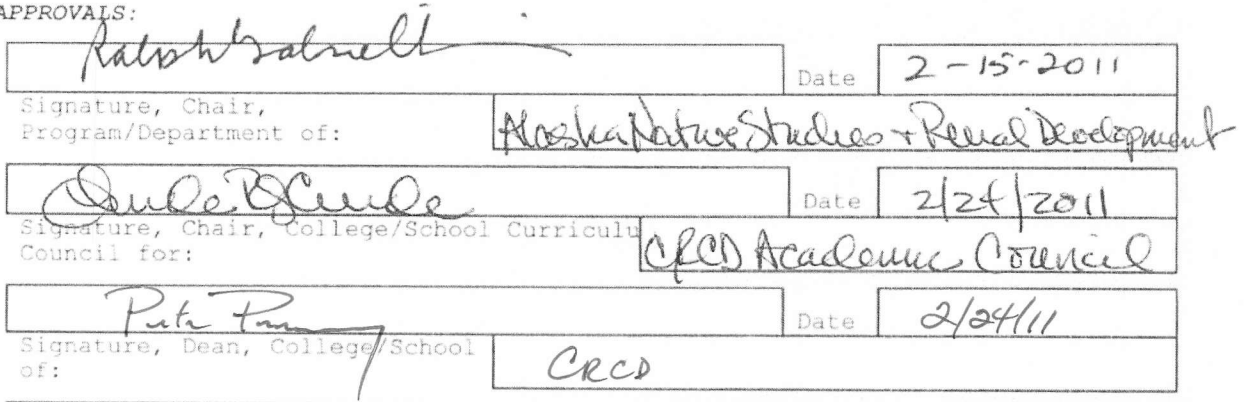 APPROVALS:
Date 2-15-2011
Signature, Chair,
Program/Department of: Alaska Native Studies + Rural Development
Date 2/24/2011
Signature, Chair, College/School Curriculu
Council for: CRCD Academic Council
Date 2/24/11
Signature, Dean, College/School
of: CRCD